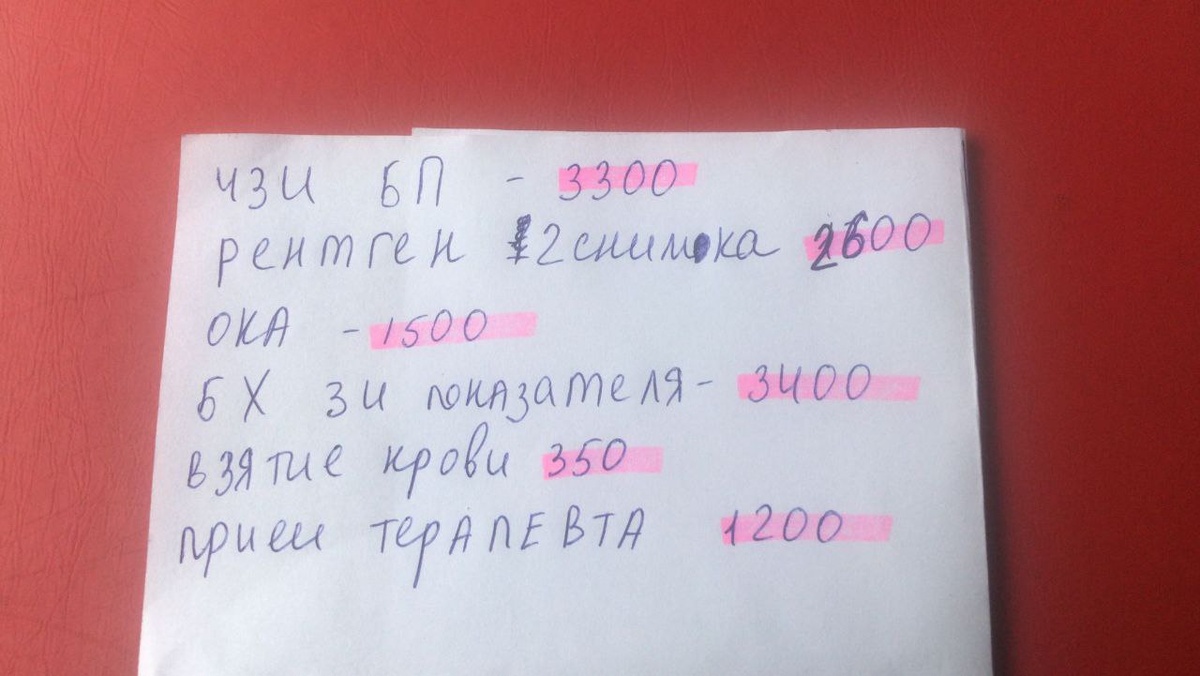 УЗИ БП - 3300
рентген 2 снимка 2600
ОКА - 1500
БХ 34 показателя - 3400
взятие крови 350
прием терапевта 1200